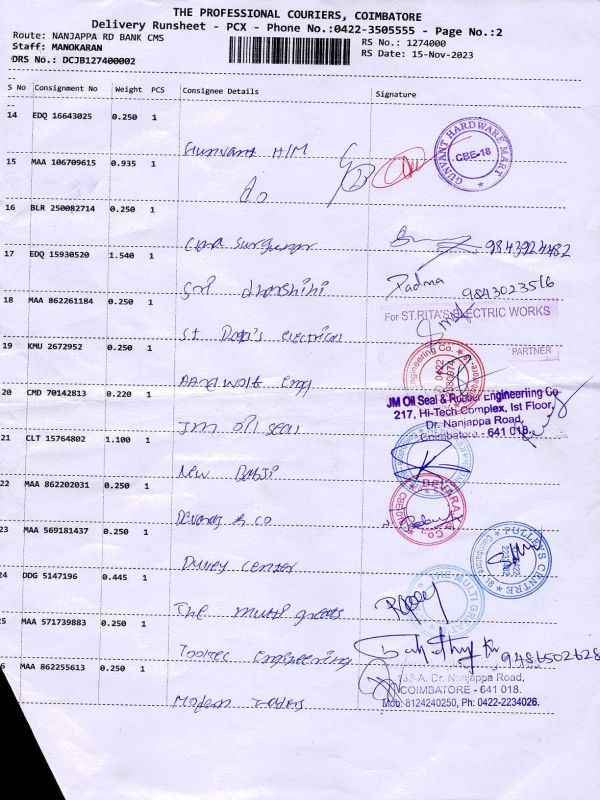 THE PROFESSIONAL COURIERS, COIMBATORE
Delivery Runsheet - PCX - Phone No.:0422-3505555 - Page No.:2
Route: NANJAPPA RD BANK CMS
RS No.: 1274000
Staff: MANOKARAN
RS Date: 15-Nov-2023
DRS No.: DCJB127400002
S No Consignment No Weight PCS Consignee Details Signature
14 EDQ 16643025 0.250 1
Gunvant H/M
GUNVANT HARDWARE MART
CBE-18
15 MAA 106709615 0.935 1
do
16 BLR 250082714 0.250 1
9843924482
17 EDQ 15930520 1.540 1
Sri dharshini
Padma
9843023516
18 MAA 862261184 0.250 1
For ST.RITA'S ELECTRIC WORKS
St Rita's electrical
PARTNER
19 KMU 2672952 0.250 1
Engineering Co.
20 CMD 70142813 0.220 1
JM Oil Seal & Rubber Engineering Co
217, Hi-Tech Complex, Ist Floor,
Dr. Nanjappa Road,
Coimbatore - 641 018.
JM oil seal
21 CLT 15764802 1.100 1
New
22 MAA 862202031 0.250 1
Devaraj & Co
DEVARAJ & Co.,
23 MAA 569181437 0.250 1
center
PULLEYS CENTRE
Coimbatore
24 DDG 5147196 0.445 1
The multi greats
THE MULTI GREATS
25 MAA 571739883 0.250 1
Tooltec engineering
9486502628
6 MAA 862255613 0.250 1
153-A. Dr. Nanjappa Road,
COIMBATORE - 641 018.
Mob: 8124240250, Ph: 0422-2234026.
Modern